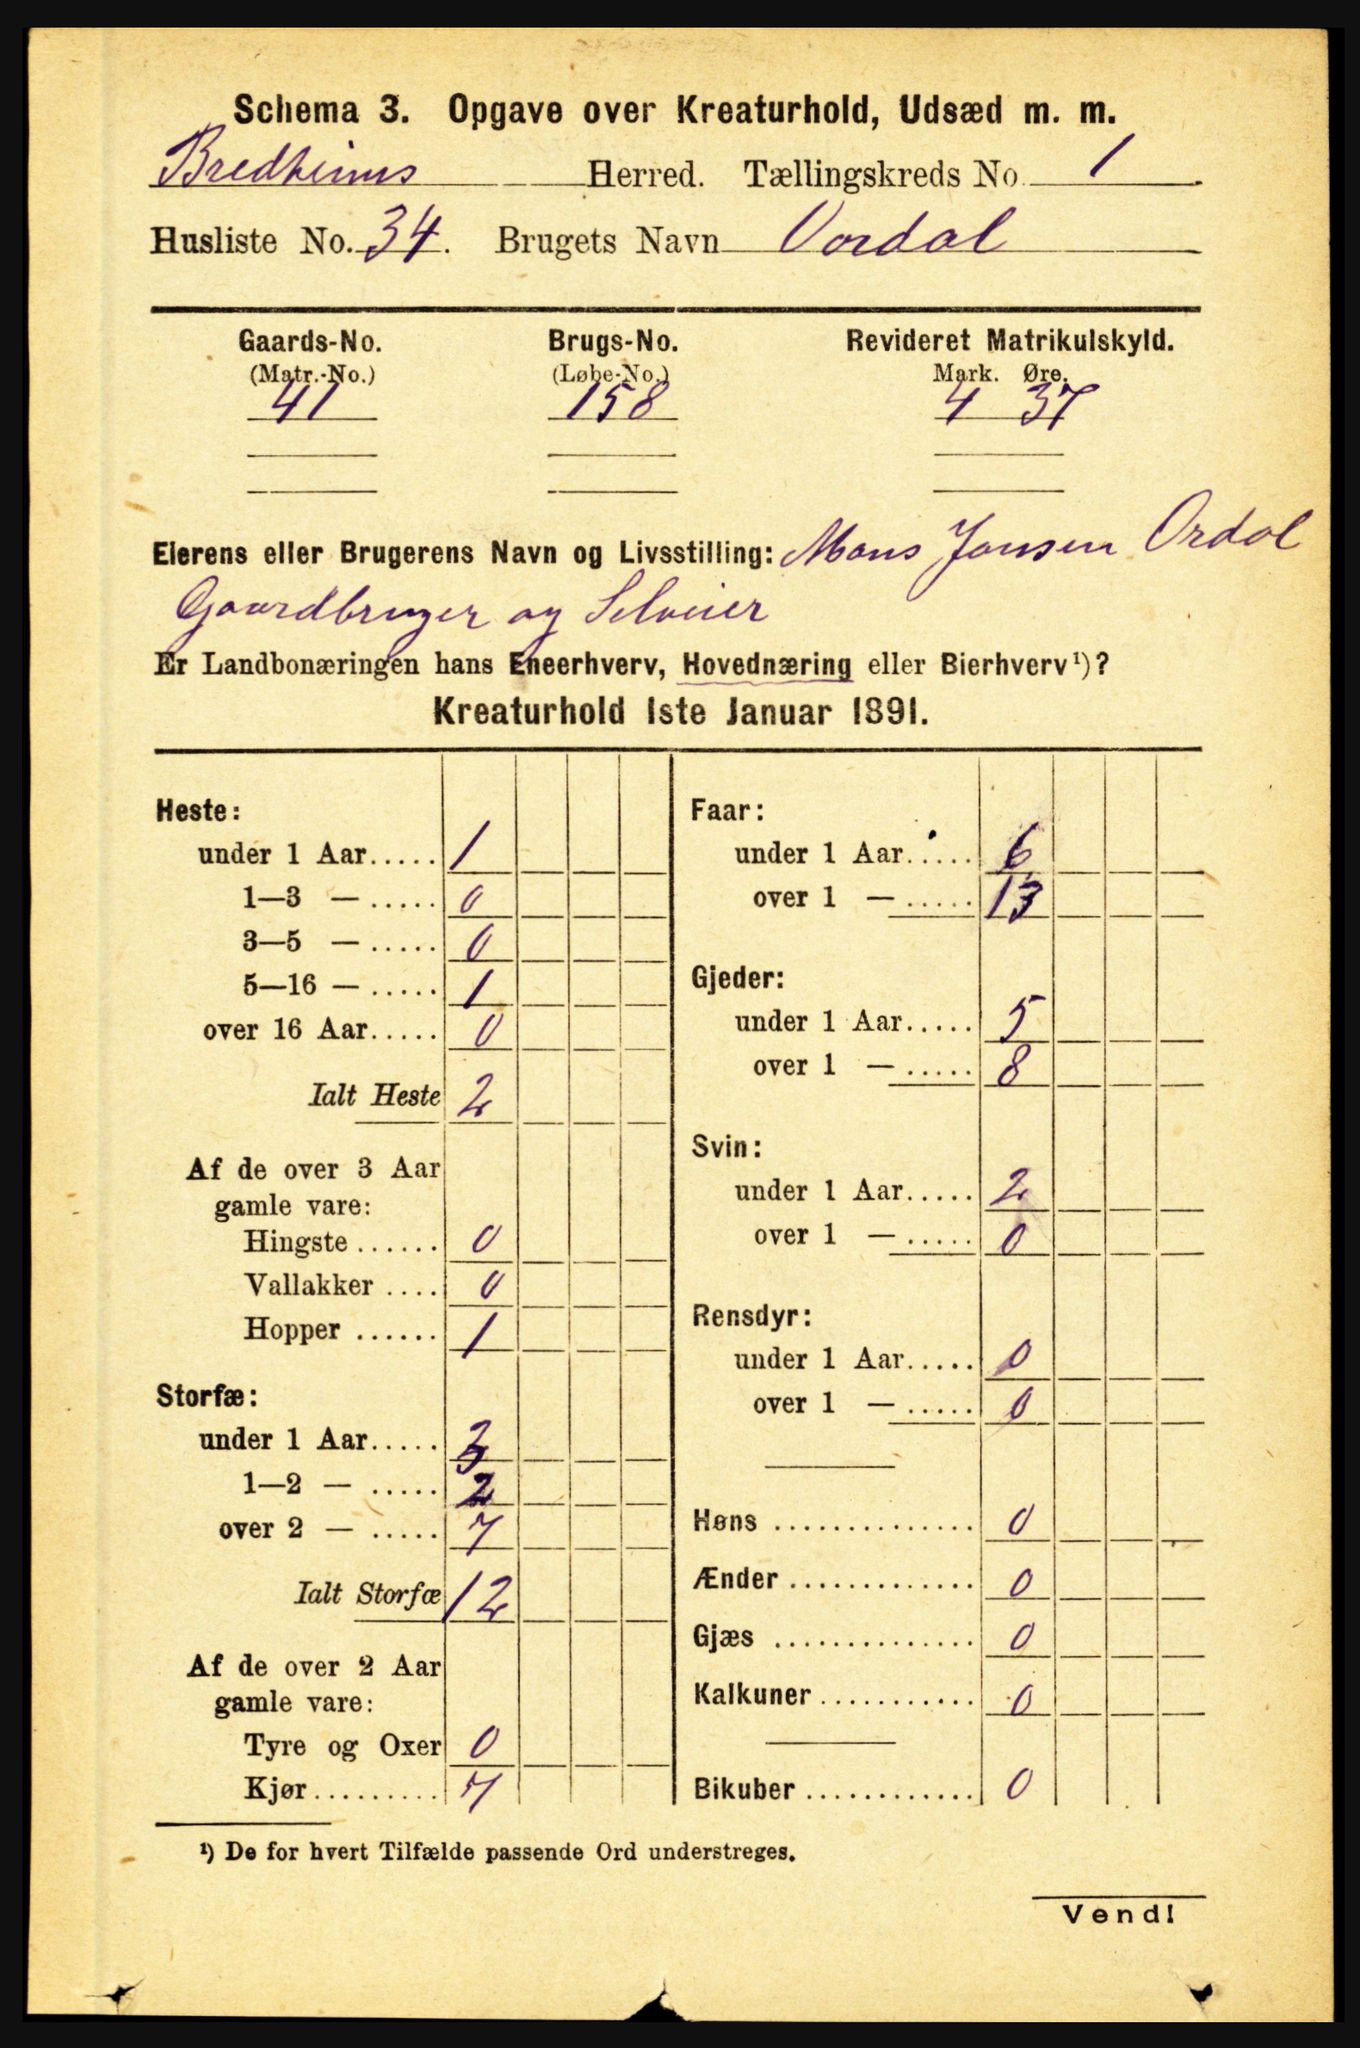 Schema 3. Opgave over Kreaturhold, Udsæd m. m.
Bredheims Herred. Tællingskreds No. 1
Husliste No. 34. Brugets Navn Vordal
Gaards-No. Brugs-No. Revideret Matrikulskyld.
(Matr.-No.) (Løbe-No.) Mark. Øre.
41 158 4 37
Eierens eller Brugerens Navn og Livsstilling: Mons Jansen Ordal
Gaardbruger og Selveier
Er Landbonæringen hans Eneerhverv, Hovednæring eller Bierhverv¹)?
Kreaturhold 1ste Januar 1891.
Heste:
under 1 Aar..... 1
1—3 — ..... 0
3—5 — ..... 0
5—16 — ..... 1
over 16 Aar..... 0
Ialt Heste 2
Af de over 3 Aar
gamle vare:
Hingste ...... 0
Vallakker .... 0
Hopper ...... 1
Storfæ:
under 1 Aar..... 3
1—2 — ..... 2
over 2 — ..... 7
Ialt Storfæ 12
Af de over 2 Aar
gamle vare:
Tyre og Oxer 0
Kjør......... 7
Faar:
under 1 Aar..... 6
over 1 — ..... 13
Gjeder:
under 1 Aar..... 5
over 1 — ..... 8
Svin:
under 1 Aar..... 2
over 1 — ..... 0
Rensdyr:
under 1 Aar..... 0
over 1 — ..... 0
Høns .............. 0
Ænder ............. 0
Gjæs .............. 0
Kalkuner........... 0
Bikuber ............ 0
¹) De for hvert Tilfælde passende Ord understreges.
Vend!